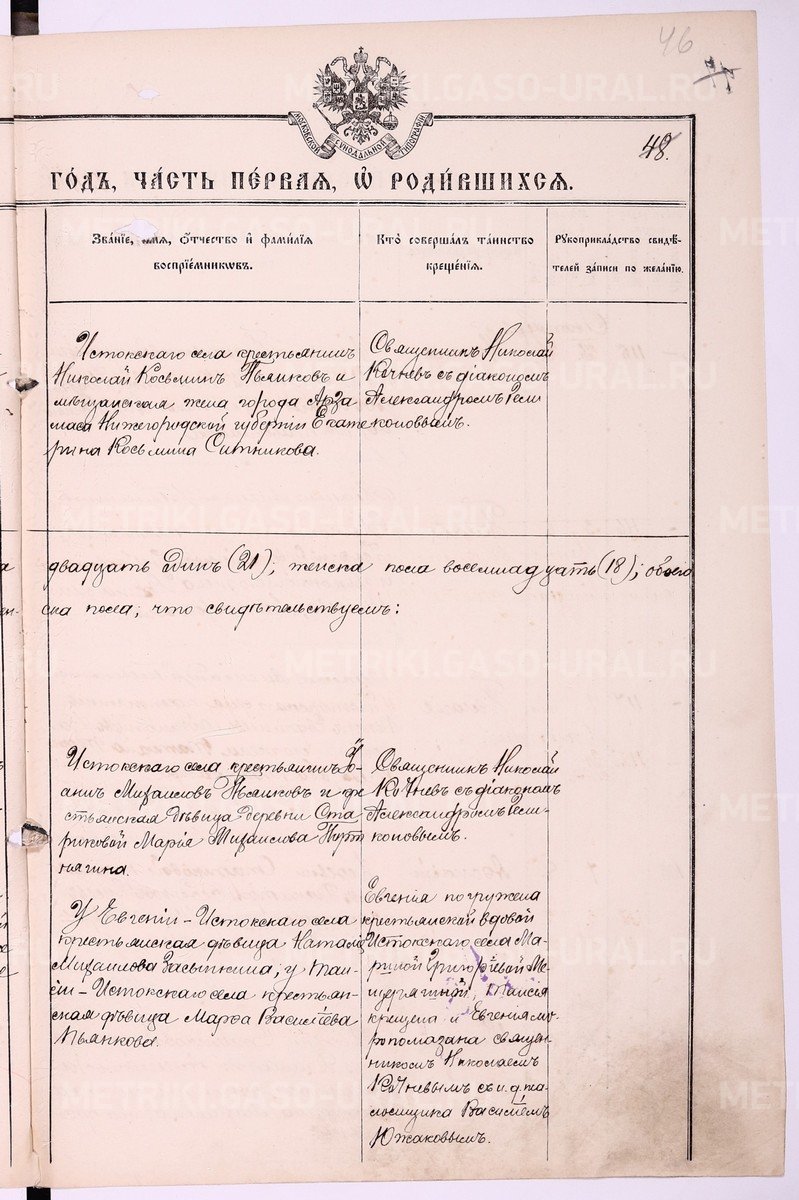 46
48.
МОСКОВСКОЙ СѴНОДАЛЬНОЙ ТИПОГРАФІИ
ГО́ДЪ, ЧА́СТЬ ПЕ́РВАЯ, Ѡ҆ РОДИ́ВШИХСЯ.
Зва́нїе, и҆́мя, ѻ҆́тчество и҆ фами́лїя
воспрїе́мникѡвъ.
Кто̀ соверша́лъ та́инство
креще́нїя.
Рꙋкоприкла́дство свидѣ́-
телей за́писи по жела́нїю.
Истокскаго села крестьянинъ
Николай Косьминъ Пьянковъ и
мѣщанская жена города Арза
маса Нижегородской губерніи Екате
рина Косьмина Ситникова.
Священникъ Николай
Кочневъ съ діакономъ
Александромъ Гели
коновымъ.
двадцать динъ (21); женска пола восемнадцать (18); обоего
пола; что свидѣтельствуемъ:
Истокскаго села крестьянинъ Іо-
аннъ Михаиловъ Пьянковъ и кре
стьянская дѣвица деревни Ста
риковой Марія Михаилова Порт
нягина.
Священникъ Николай
Кочневъ съ діакономъ
Александромъ Гели-
коновымъ.
У Евгеніи – Истокскаго села
крестьянская дѣвица Наталія
Михаилова Засыпкина; у Таи-
сіи – Истокскаго села крестьян-
ская дѣвица Марѳа Васильева
Пьянкова.
Евгенія погружена
крестьянской вдовой
Истокскаго села Ма-
риной Григорьевой Ме-
щерягиной, Таисія
крещена и Евгенія му-
ропомазана священ-
никомъ Николаемъ
Кочневымъ съ и. д. пса-
ломщика Василіемъ
Южаковымъ.
METRIKI.GASO-URAL.RU